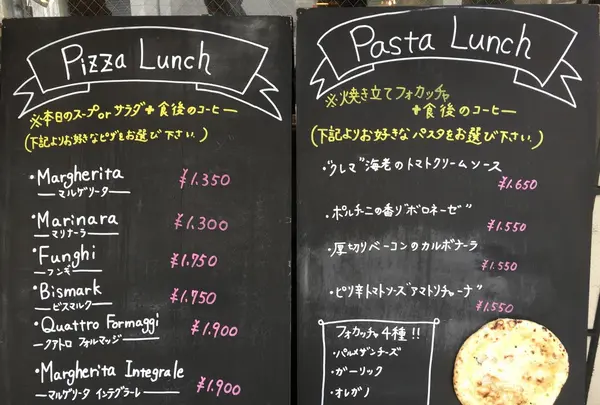 Pizza Lunch
※本日のスープorサラダ+食後のコーヒー
(下記よりお好きなピザをお選び下さい。)
・Margherita ¥1.350
ーマルゲリーター
・Marinara ¥1.300
ーマリナーラー
・Funghi ¥1.750
ーフンギー
・Bismark ¥1.750
ービスマルクー
・Quattro Formaggi ¥1.900
ークアトロ フォルマッジー
・Margherita Integrale ¥1.900
ーマルゲリータ インテグラーレー
Pasta Lunch
※焼き立てフォカッチャ
+食後のコーヒー
(下記よりお好きなパスタをお選び下さい。)
・"クレマ"海老のトマトクリームソース
¥1.650
・ポルチーニの香り"ボロネーゼ"
¥1.550
・厚切りベーコンのカルボナーラ
¥1.550
・ピリ辛トマトソース"アマトリチャーナ"
¥1.550
フォカッチャ4種!!
・パルメザンチーズ
・ガーリック
・オレガノ